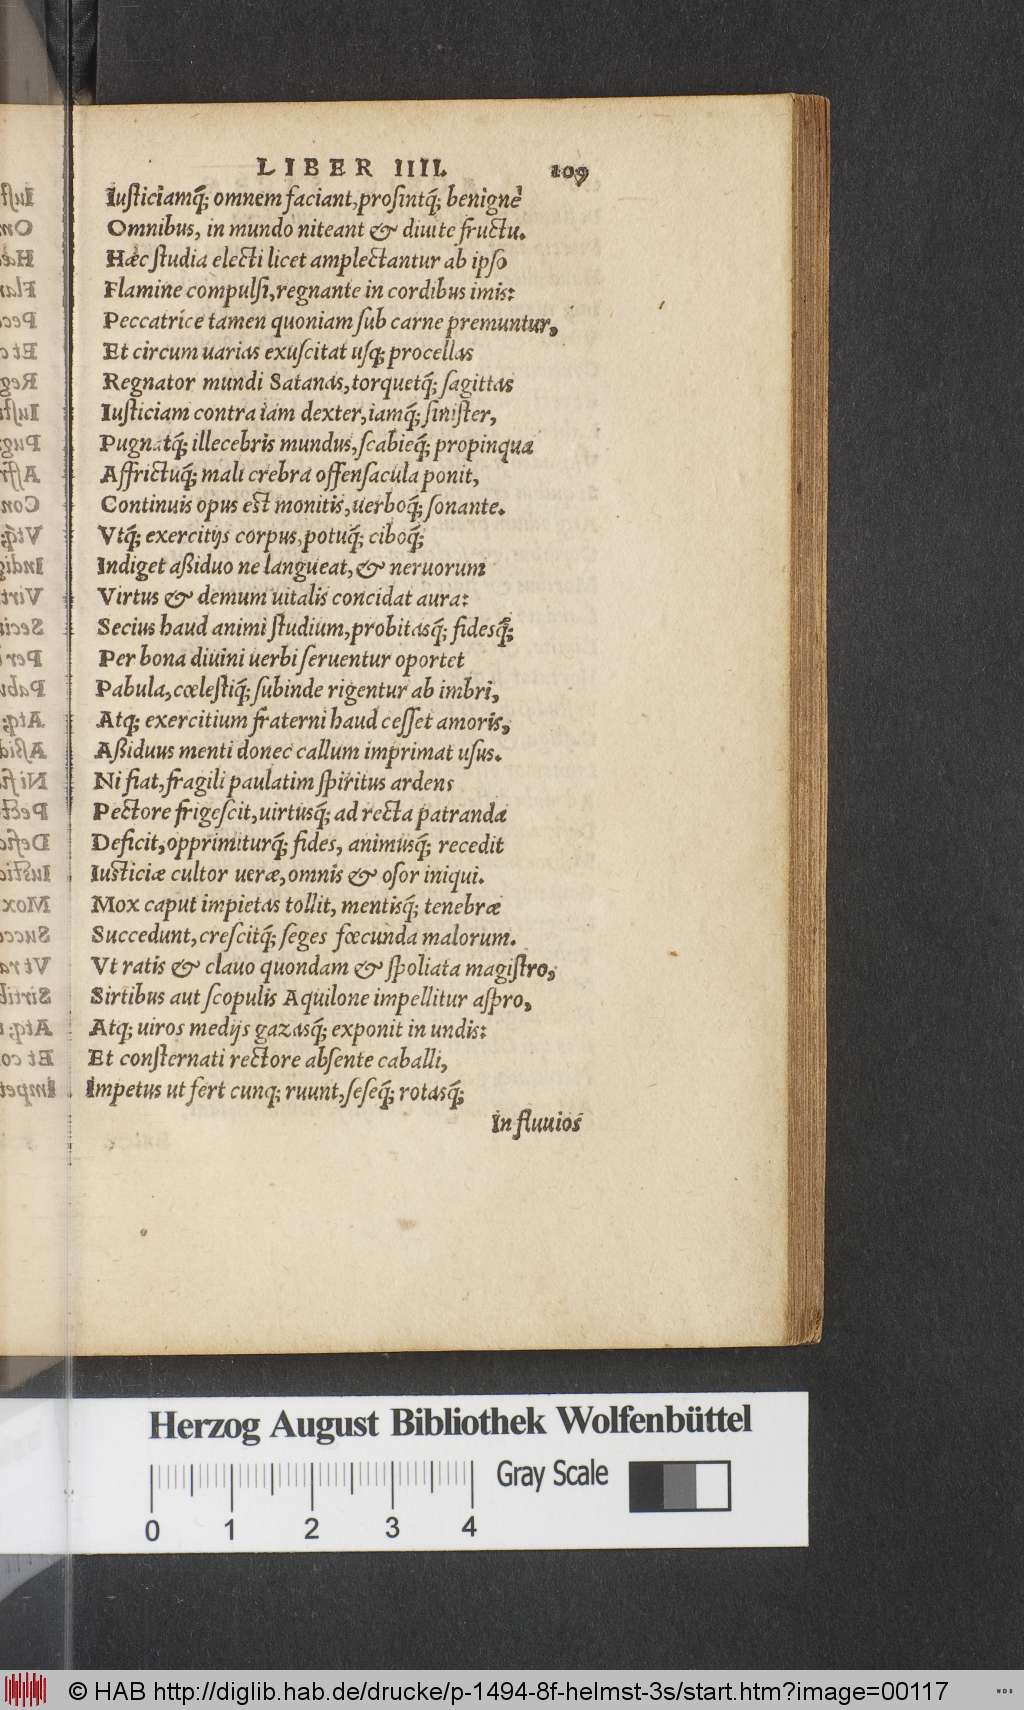 LIBER IIII. 109
Iusticiamq́; omnem faciant, prosintq́; benignè
Omnibus, in mundo niteant & diuite fructu.
Hæc studia electi licet amplectantur ab ipso
Flamine compulsi, regnante in cordibus imis:
Peccatrice tamen quoniam sub carne premuntur,
Et circum uarias exuscitat usq; procellas
Regnator mundi Satanas, torquetq́; sagittas
Iusticiam contra iam dexter, iamq́; sinister,
Pugnatq́; illecebris mundus, scabieq́; propinqua
Affrictuq́; mali crebra offensacula ponit,
Continuis opus est monitis, uerboq́; sonante.
Vtq́; exercitijs corpus, potuq́; ciboq́;
Indiget aßiduo ne langueat, & neruorum
Virtus & demum uitalis concidat aura:
Secius haud animi studium, probitasq́; fidesq́;
Per bona diuini uerbi seruentur oportet
Pabula, cœlestiq́; subinde rigentur ab imbri,
Atq; exercitium fraterni haud cesset amoris,
Aßiduus menti donec callum imprimat usus.
Ni fiat, fragili paulatim spiritus ardens
Pectore frigescit, uirtusq́; ad recta patranda
Deficit, opprimiturq́; fides, animusq́; recedit
Iusticiæ cultor ueræ, omnis & osor iniqui.
Mox caput impietas tollit, mentisq́; tenebræ
Succedunt, crescitq́; seges fœcunda malorum.
Vt ratis & clauo quondam & spoliata magistro,
Sirtibus aut scopulis Aquilone impellitur aspro,
Atq; uiros medijs gazasq́; exponit in undis:
Et consternati rectore absente caballi,
Impetus ut fert cunq; ruunt, seseq́; rotasq́;
In fluuios
Herzog August Bibliothek Wolfenbüttel
Gray Scale
0 1 2 3 4
© HAB http://diglib.hab.de/drucke/p-1494-8f-helmst-3s/start.htm?image=00117